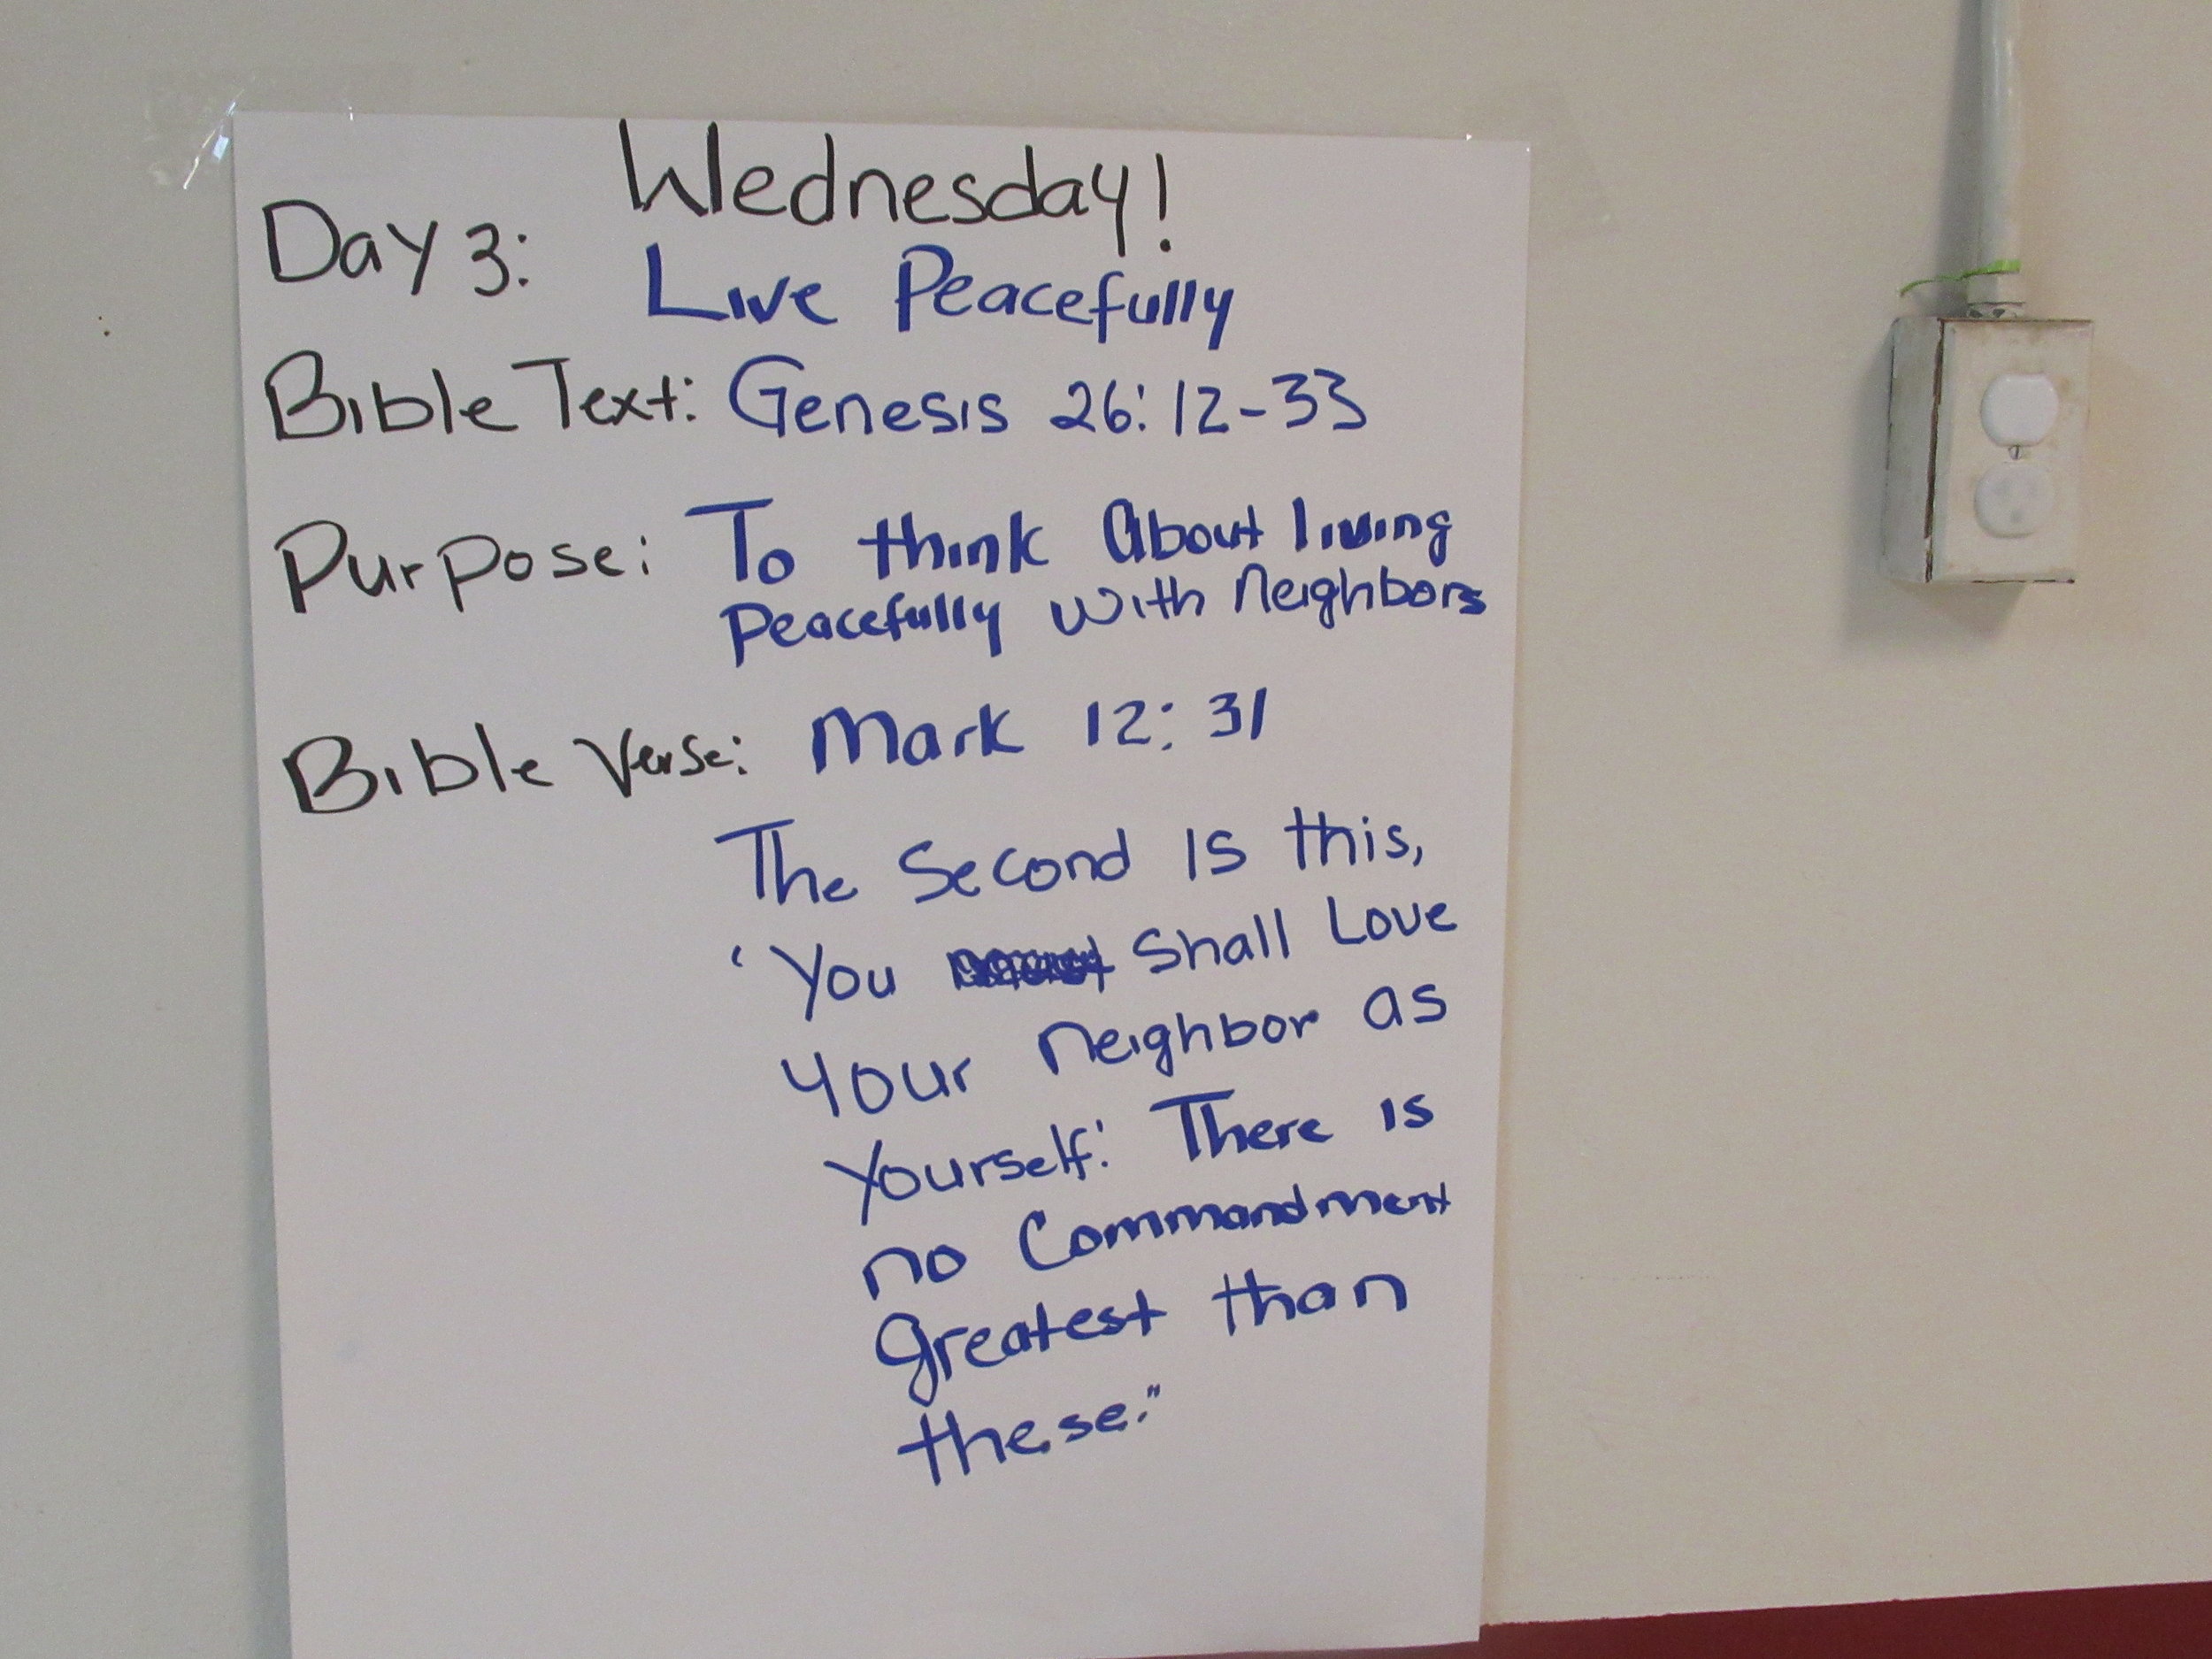 Wednesday!
Day 3: Live Peacefully
Bible Text: Genesis 26:12-33
Purpose: To think About living
Peacefully with neighbors
Bible Verse: Mark 12:31
The Second is this,
'You shall Love
your neighbor as
yourself.' There is
no Commandment
greatest than
these."